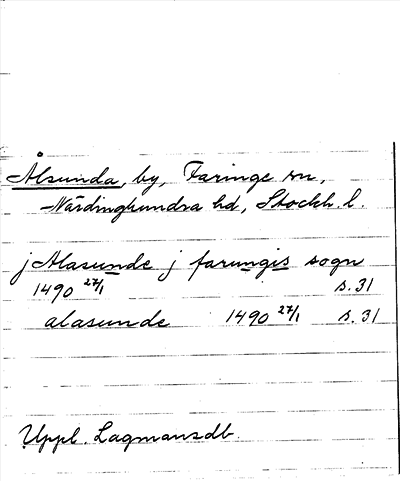 Ålsunda, by, Faringe sn,
Närdinghundra hd, Stockh. l.
j Alasunde j farungis sogn
1490 27/1 s. 31
alasunde 1490 27/1 s. 31
Uppl. Lagmansdb.